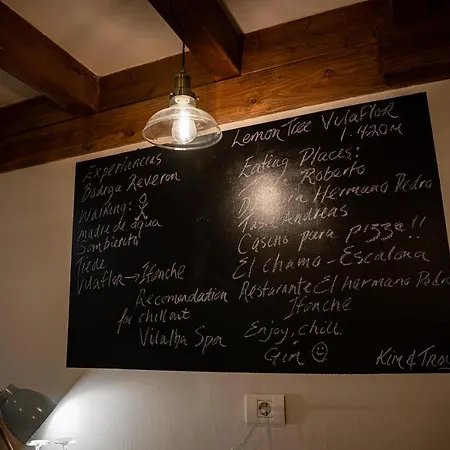 Lemon Tree Vilaflor
1.420M
Experiancias
Bodega Reveron
Walking:
madre de agua
Sombrerito
Tiede
Vilaflor → Ifonche
Recomendation
for chillout
Vilalba Spa
Eating Places:
Roberto
Hermano Pedro
Tasca Andreas
Casino para pizza!!
El chamo - Escalona
Restarante El hermano Pedro
Ifonche
Enjoy, chill.
Gin ☺
Kim &